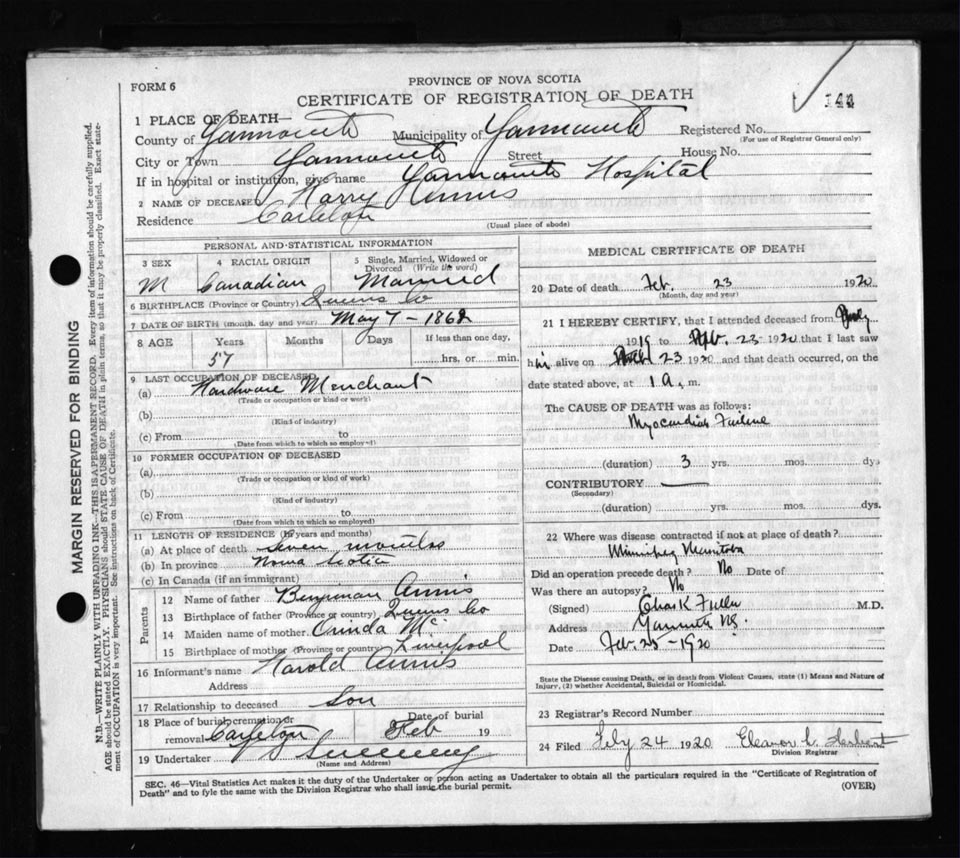 FORM 6
PROVINCE OF NOVA SCOTIA
CERTIFICATE OF REGISTRATION OF DEATH
144
1 PLACE OF DEATH—
County of Yarmouth Municipality of Yarmouth Registered No.
(For use of Registrar General only)
City or Town Yarmouth Street House No.
If in hospital or institution, give name Yarmouth Hospital
2 NAME OF DECEASED Harry Annis
Residence Carleton
(Usual place of abode)
PERSONAL AND STATISTICAL INFORMATION
3 SEX 4 RACIAL ORIGIN 5 Single, Married, Widowed or Divorced (Write the word)
M Canadian Married
6 BIRTHPLACE (Province or Country) Queens Co
7 DATE OF BIRTH (month, day and year) May 7 - 1862
8 AGE Years Months Days If less than one day,
57 hrs. or min.
9 LAST OCCUPATION OF DECEASED
(a) Hardware Merchant
(Trade or occupation or kind or work)
(b)
(Kind of industry)
(c) From to
(Date from to which so employed)
10 FORMER OCCUPATION OF DECEASED
(a)
(Trade or occupation or kind of work)
(b)
(Kind of industry)
(c) From to
(Date from to which so employed)
11 LENGTH OF RESIDENCE (in years and months)
(a) At place of death seven months
(b) In province Nova Scotia
(c) In Canada (if an immigrant)
Parents
12 Name of father Benjiman Annis
13 Birthplace of father (Province or country) Queens Co
14 Maiden name of mother Orinda
15 Birthplace of mother (Province or country) Liverpool
16 Informant's name Harold Annis
Address
17 Relationship to deceased Son
18 Place of burial, cremation or removal Carleton Date of burial Feb 19
19 Undertaker Sweeney
(Name and Address)
MEDICAL CERTIFICATE OF DEATH
20 Date of death Feb. 23 1920
(Month, day and year)
21 I HEREBY CERTIFY, that I attended deceased from July
1919 to Feb. 23 1920 that I last saw
him alive on Feb 23 1920 and that death occurred, on the
date stated above, at 1 a. m.
The CAUSE OF DEATH was as follows:
Myocardial Failure
(duration) 3 yrs. mos. dys
CONTRIBUTORY
(Secondary)
(duration) yrs. mos. dys.
22 Where was disease contracted if not at place of death?
Winnipeg Manitoba
Did an operation precede death? No Date of
Was there an autopsy? No
(Signed) Chas K Fuller M.D.
Address Yarmouth NS.
Date Feb. 25 - 1920
State the Disease causing Death, or in death from Violent Causes, state (1) Means and Nature of
Injury, (2) whether Accidental, Suicidal or Homicidal.
23 Registrar's Record Number
24 Filed Feby 24 1920 Eleanor L. Herbert
Division Registrar
SEC. 46—Vital Statistics Act makes it the duty of the Undertaker or person acting as Undertaker to obtain all the particulars required in the "Certificate of Registration of
Death" and to fyle the same with the Division Registrar who shall issue the burial permit. (OVER)
MARGIN RESERVED FOR BINDING
N.B.—WRITE PLAINLY WITH UNFADING INK—THIS IS A PERMANENT RECORD. Every item of information should be carefully supplied.
AGE should be stated EXACTLY. PHYSICIANS should STATE CAUSE OF DEATH in plain terms, so that it may be properly classified. Exact state-
ment of OCCUPATION is very important. See instructions on back of Certificate.